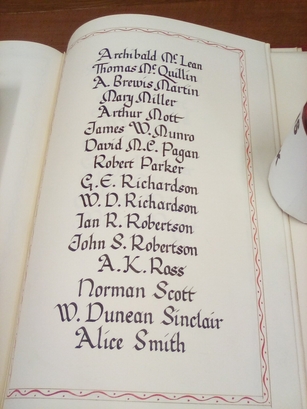 Archibald McLean
Thomas McQuillin
A. Brewis Martin
Mary Miller
Arthur Mott
James W. Munro
David M.C. Pagan
Robert Parker
G.E. Richardson
W.D. Richardson
Ian R. Robertson
John S. Robertson
A.K. Ross
Norman Scott
W. Dunean Sinclair
Alice Smith